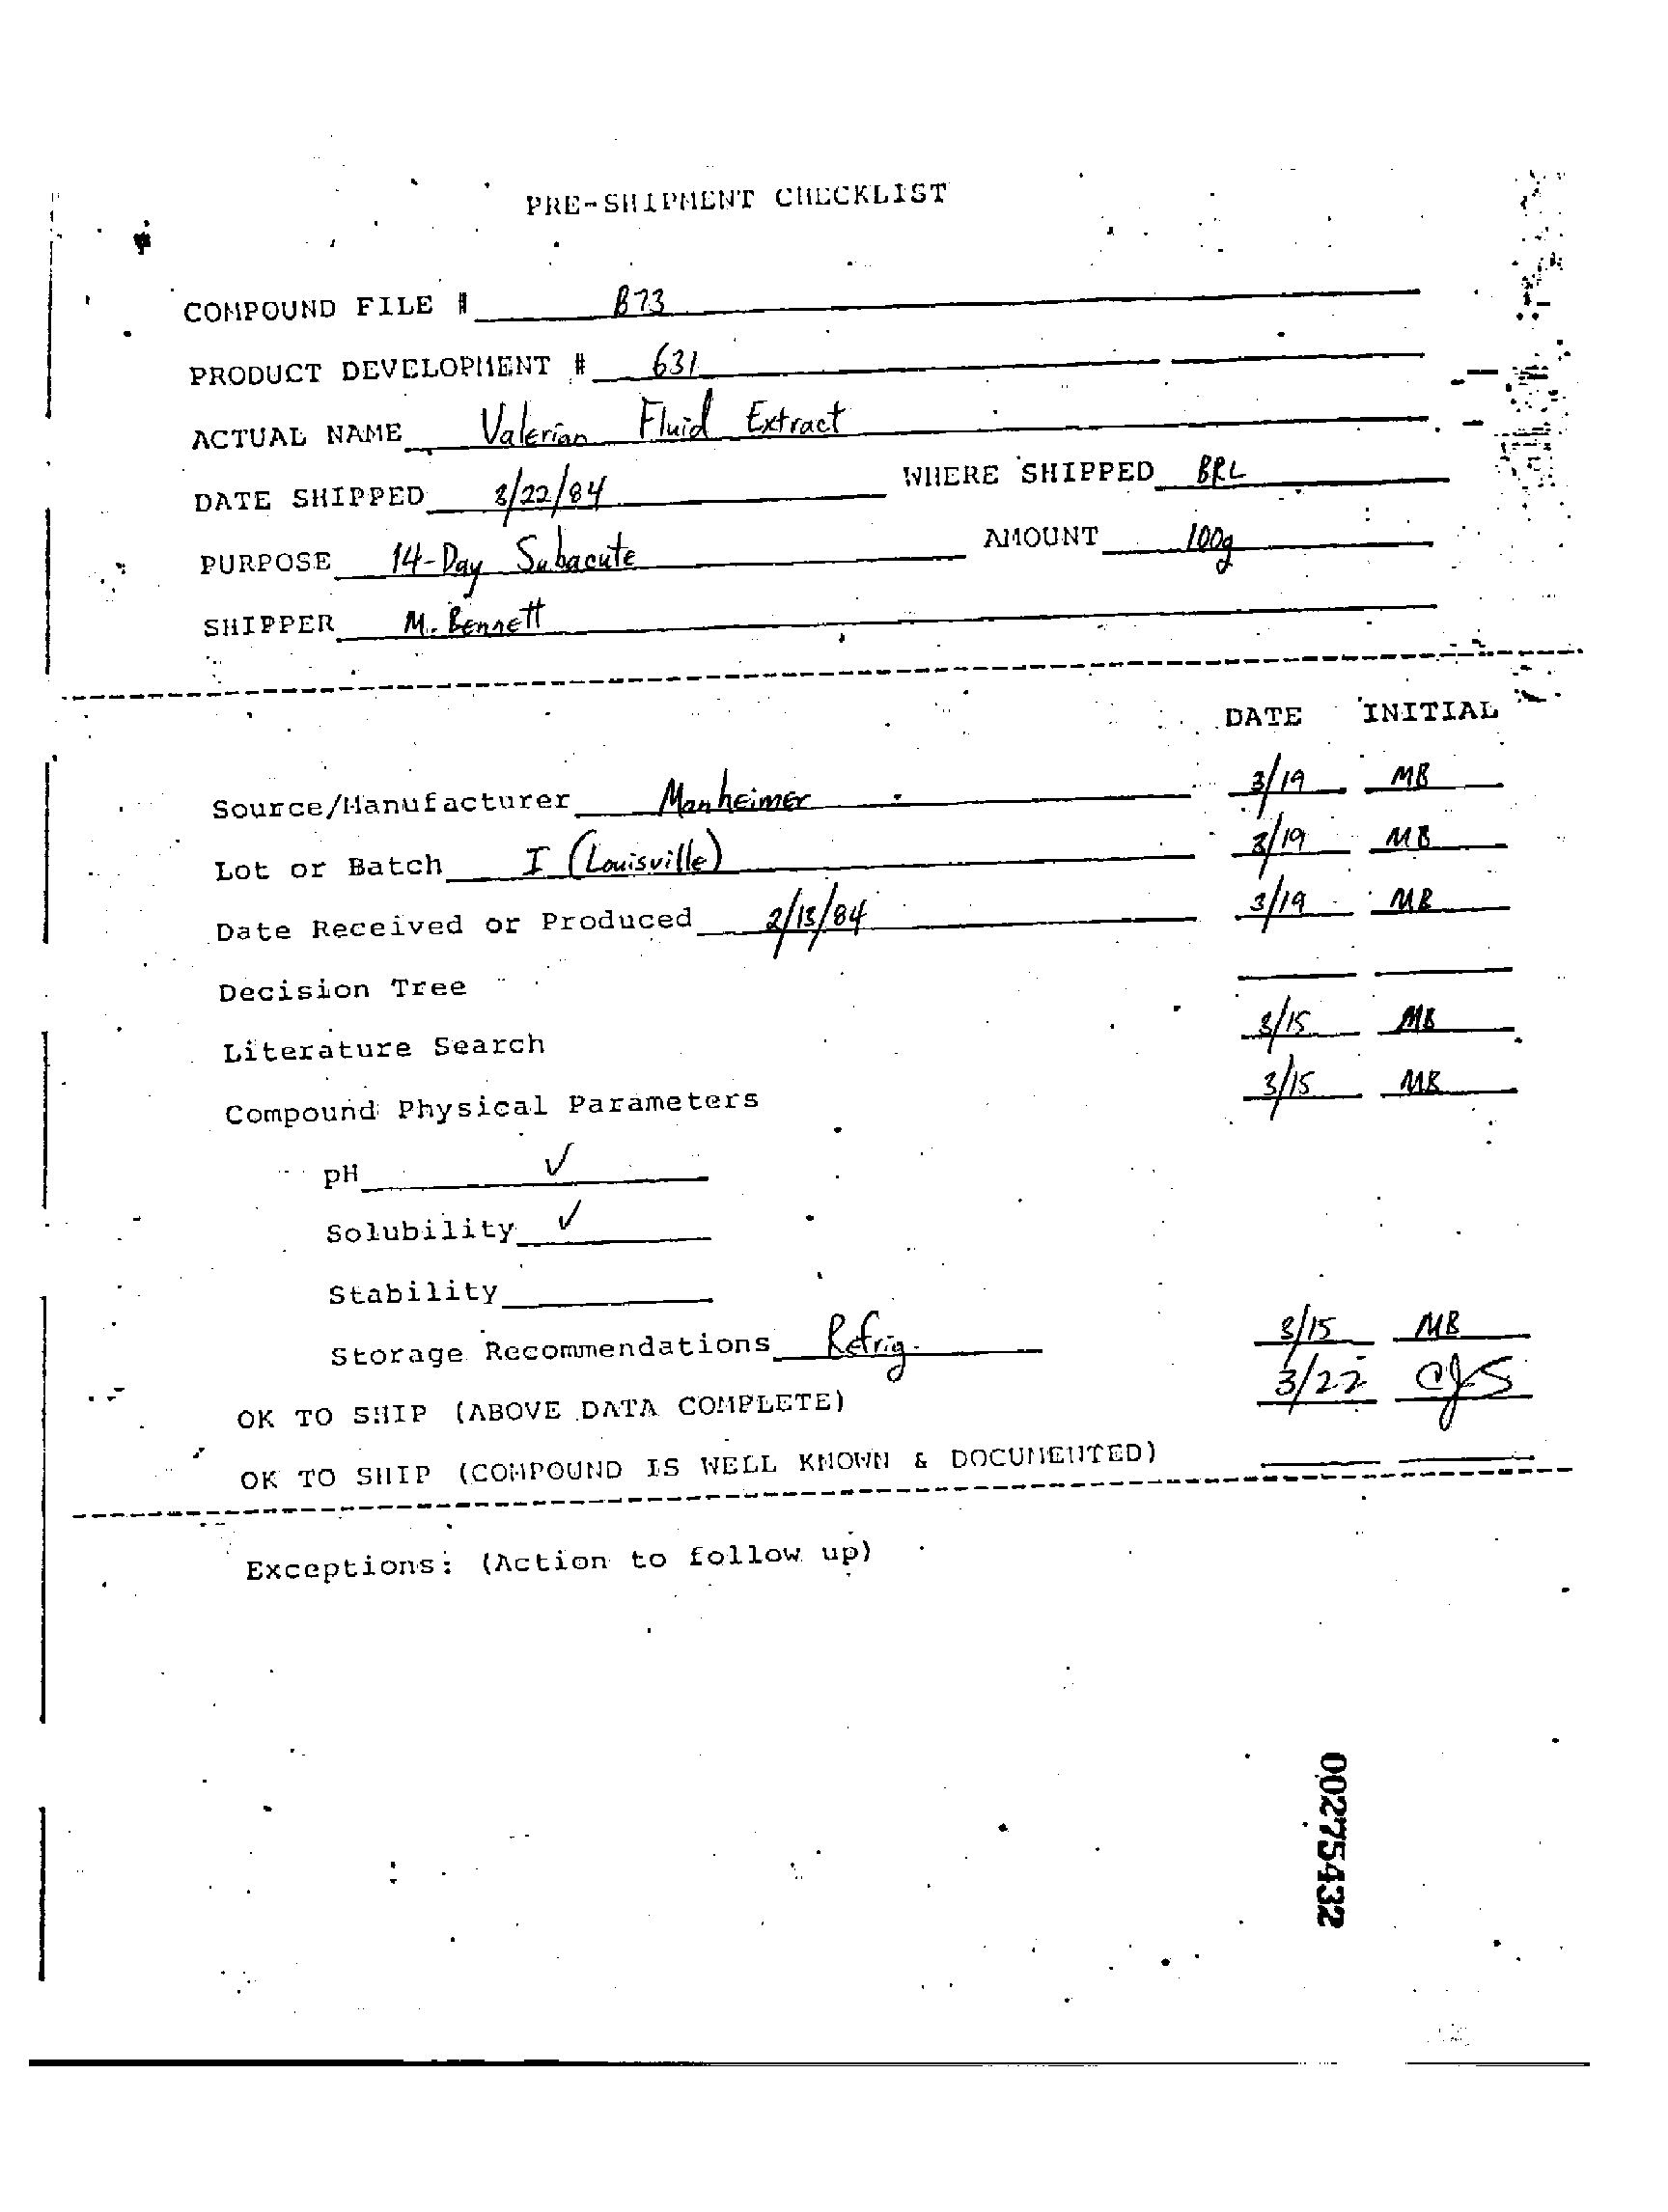 PRE-SHIPMENT CHECKLIST
COMPOUND FILE # B73
PRODUCT DEVELOPMENT # 631
ACTUAL NAME Valerian Fluid Extract
DATE SHIPPED 3/22/84 WHERE SHIPPED BRL
PURPOSE 14-Day Subacute AMOUNT 100g
SHIPPER M. Bennett
DATE INITIAL
Source/Manufacturer Manheimer 3/19 MB
Lot or Batch I (Louisville) 3/19 MB
Date Received or Produced 2/13/84 3/19 MB
Decision Tree
Literature Search 3/15 MB
Compound Physical Parameters 3/15 MB
pH ✓
Solubility ✓
Stability
Storage Recommendations Refrig. 3/15 MB
OK TO SHIP (ABOVE DATA COMPLETE) 3/22 CJS
OK TO SHIP (COMPOUND IS WELL KNOWN & DOCUMENTED)
Exceptions: (Action to follow up)
00275432